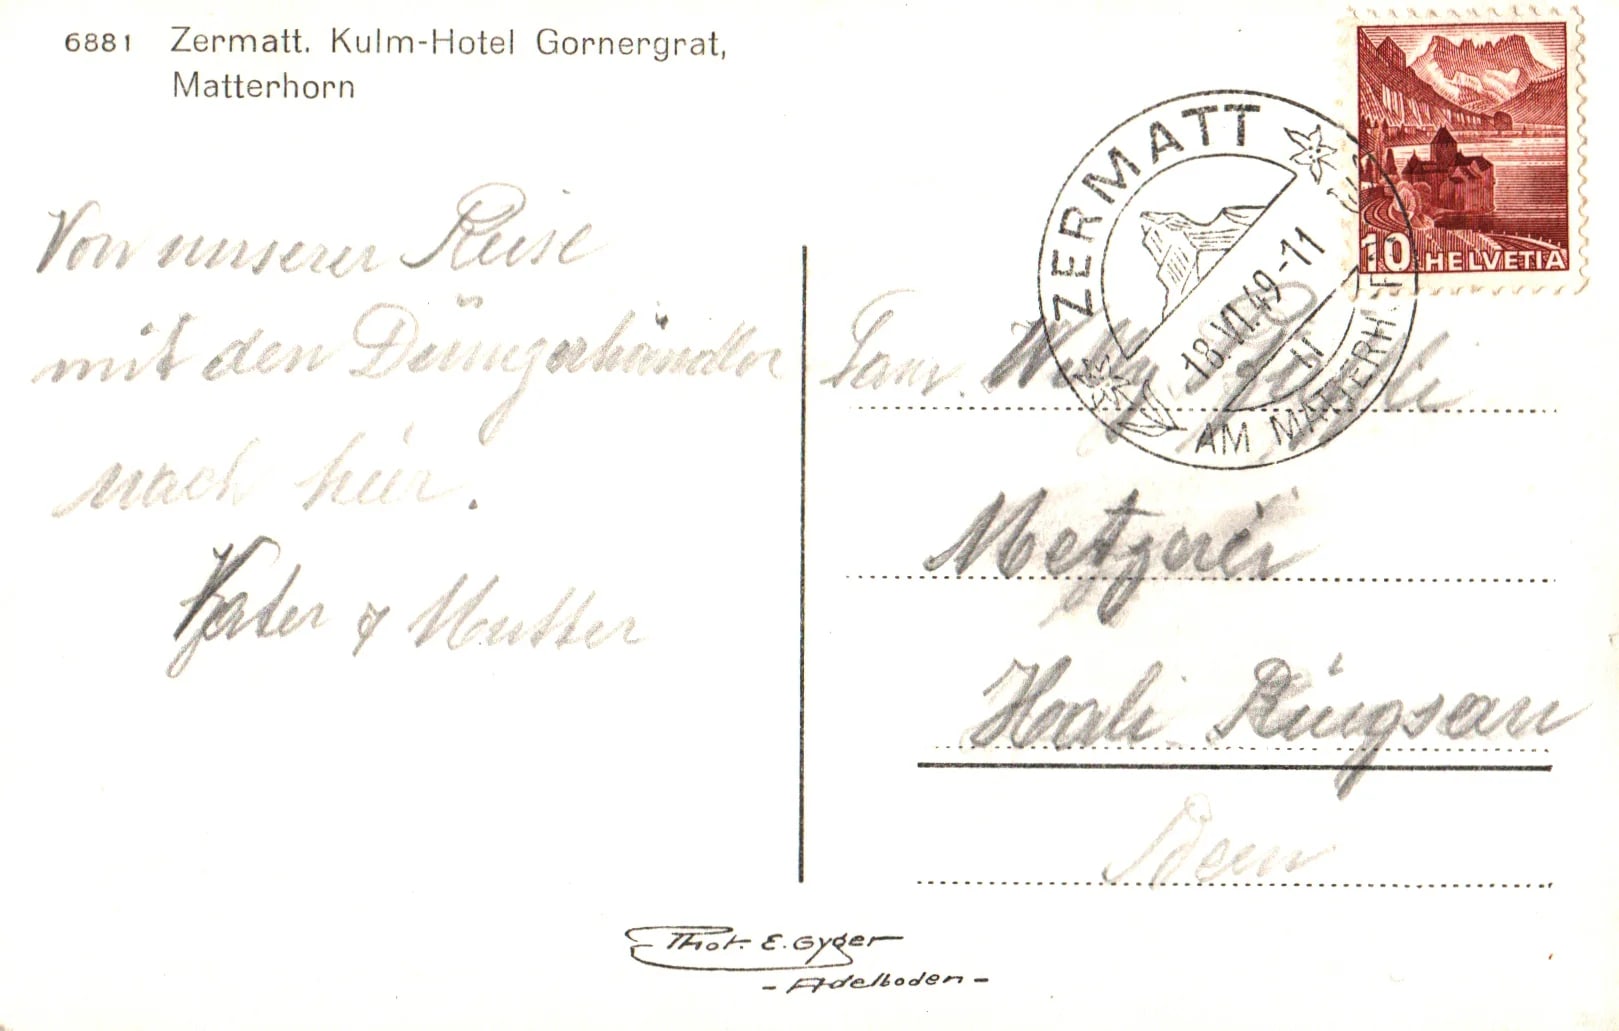 6881 Zermatt. Kulm-Hotel Gornergrat,
Matterhorn
ZERMATT
18.VII.49-11
AM MATTERH.
10 HELVETIA
Von unserer Reise
mit den Düngerhändler
nach hier.
Vater & Mutter
Fam. Willy
Metzgerei
Hasli Rüegsau
Bern
Phot. E. Gyger
- Adelboden -